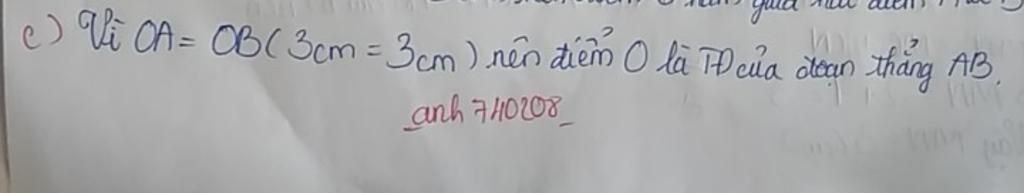 c) Vì OA = OB (3cm = 3cm) nên điểm O là TĐ của đoạn thẳng AB.
_anh 740208_